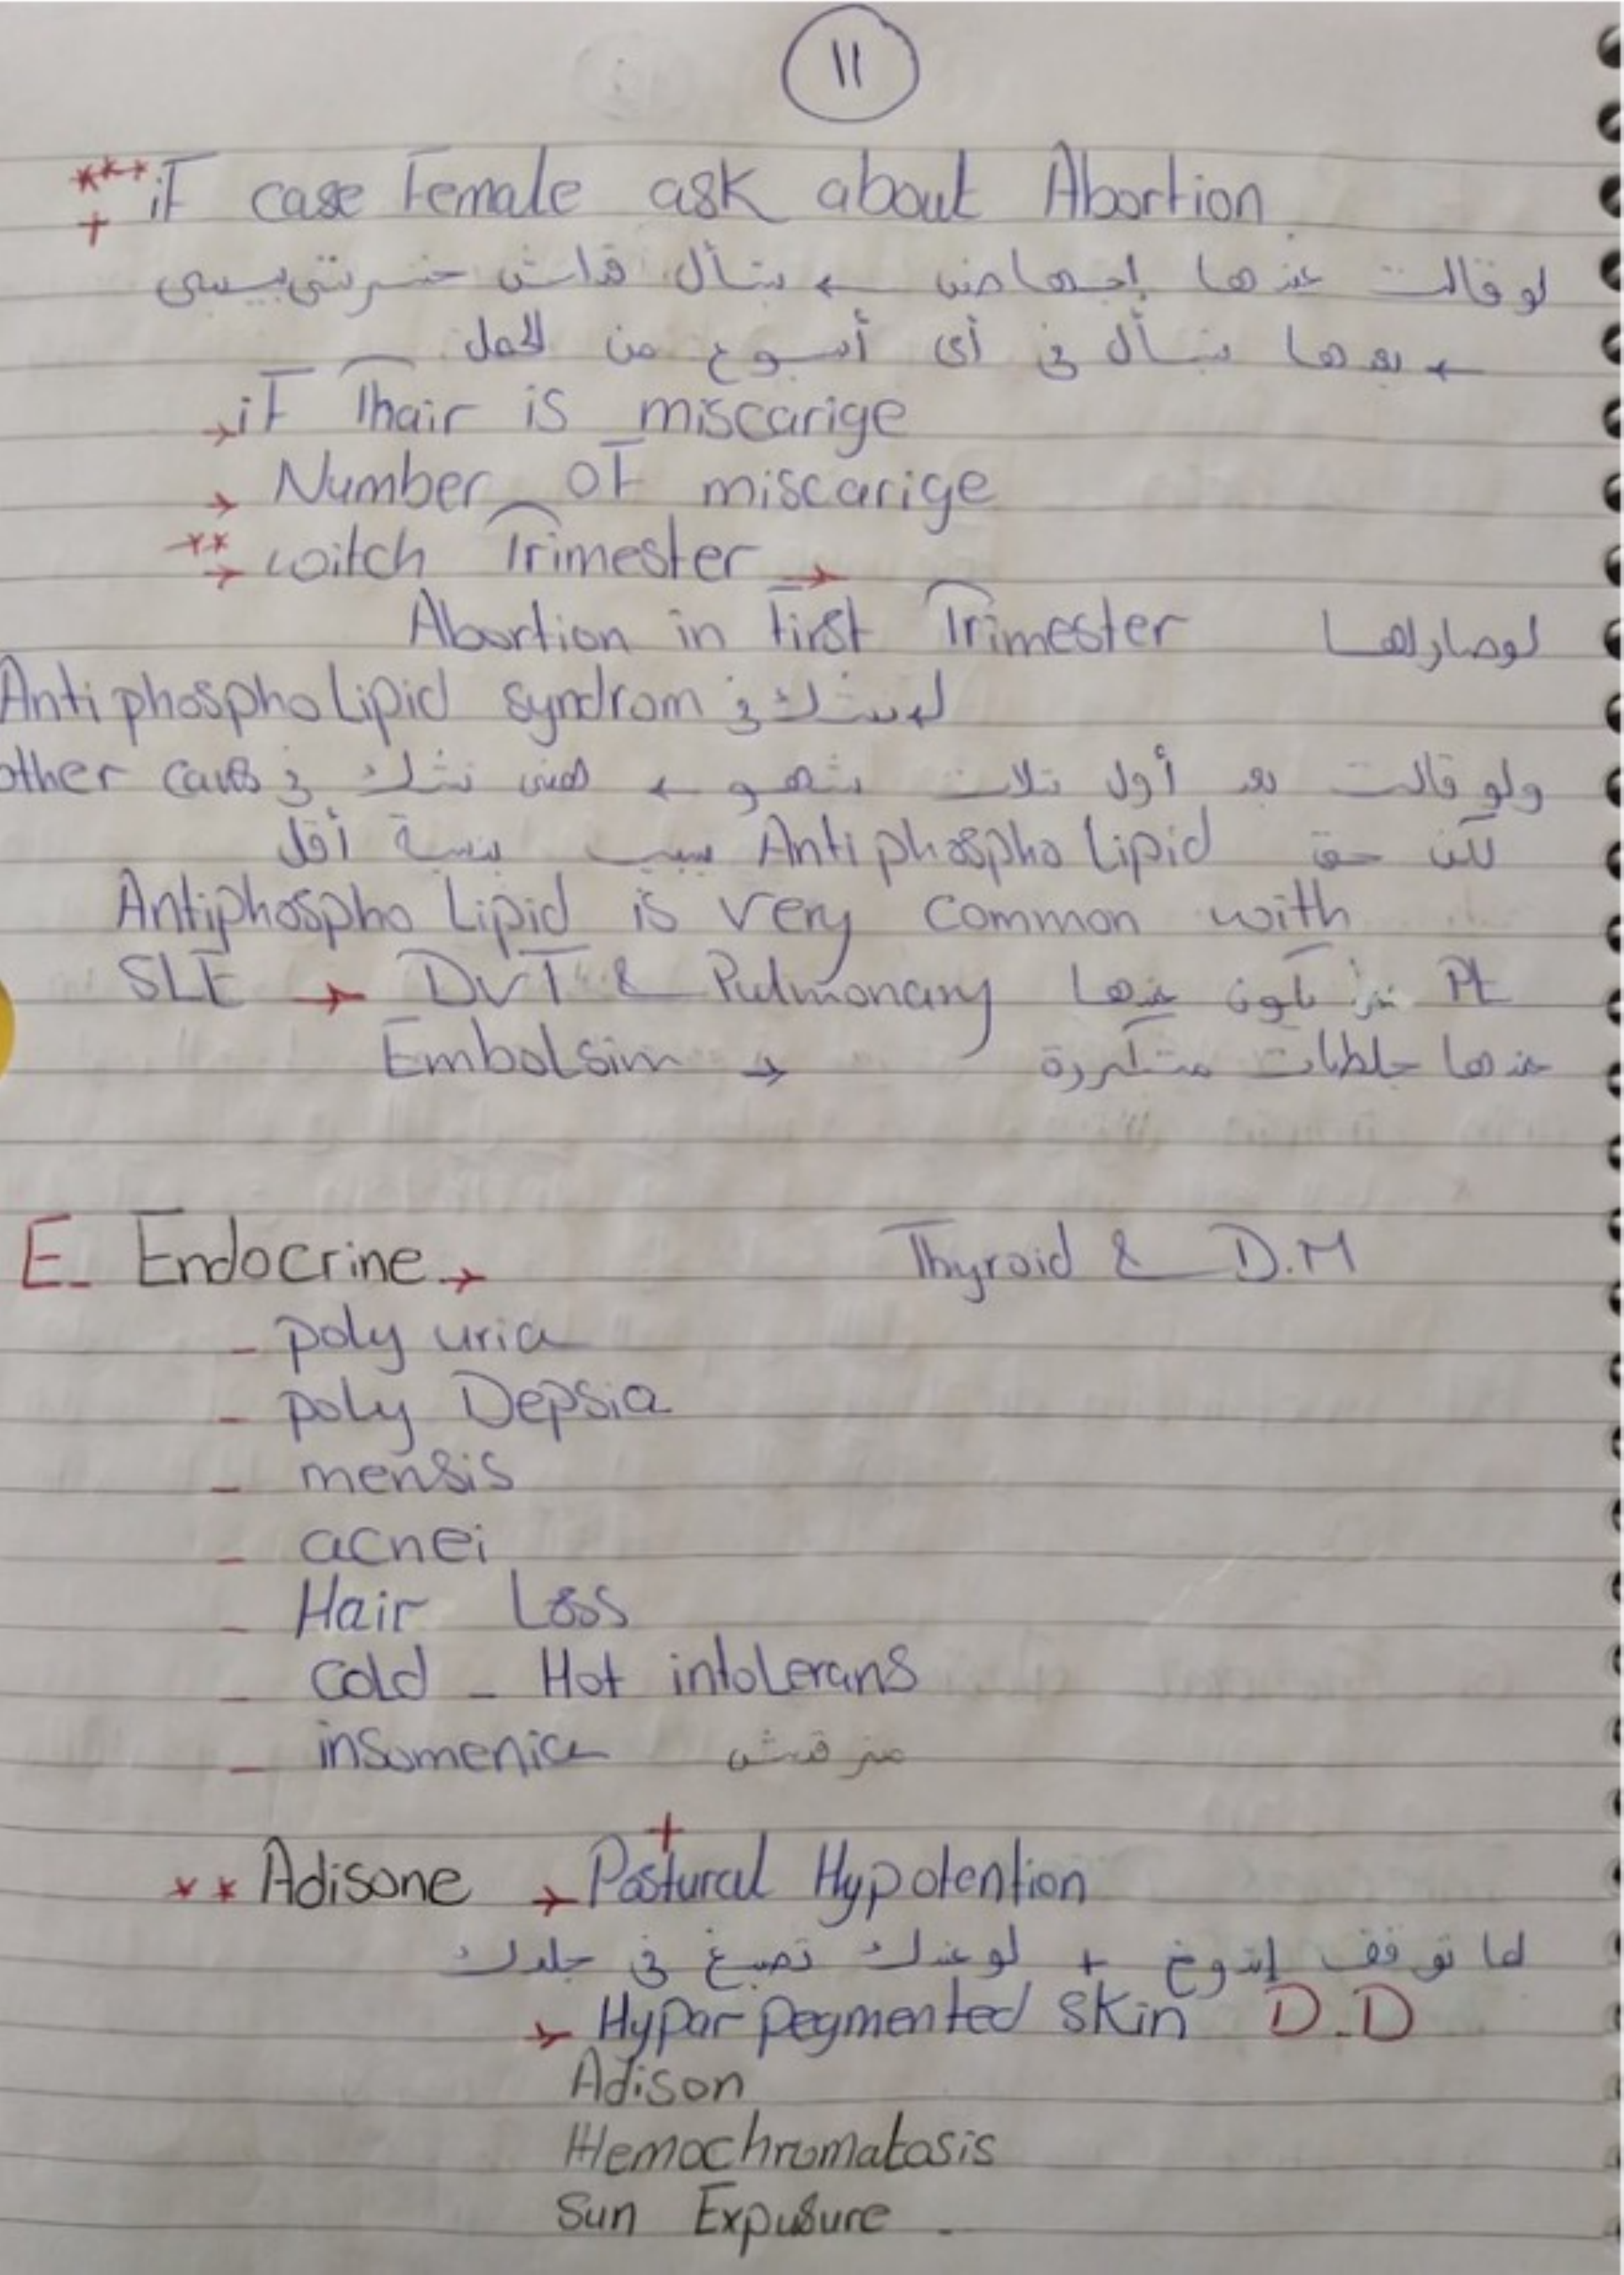 11
*** if case Female ask about Abortion
+
لو قالت عندها إجهاض ← بنسأل قداش خسرتي بيبي
← بعدها بنسأل في أي أسبوع من الحمل
→ if Thair is miscarige
→ Number of miscarige
** → witch Trimester →
لو صار لها Abortion in First Trimester
بنشك في Antiphospholipid syndrom
ولو قالت بعد أول تلات شهو ← همنى نشك في other caus
لكن حق Antiphospholipid سبب بنسبة أقل
Antiphospho Lipid is very common with
SLE → DVT & Pulmonary Pt تكون عندها
Embolsim → عندها جلطات متكررة
E- Endocrine → Thyroid & D.M
- poly uria
- poly Depsia
- mensis
- acnei
- Hair Loss
- cold - Hot intolerans
- insomenia منرقدش
+
** Adisone → Postural Hypotention
لما توقف إدوخ + لو عندك تصبغ في جلدك
→ Hyper pegmented skin D.D
Adison
Hemochromatosis
Sun Expusure .